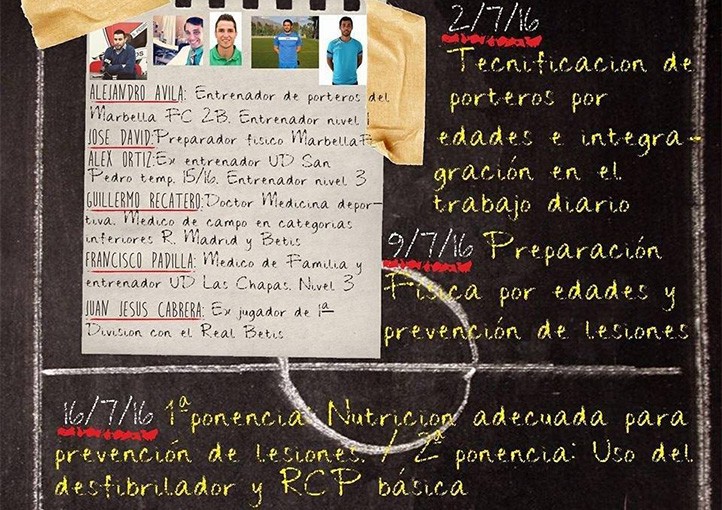 ALEJANDRO AVILA: Entrenador de porteros del
Marbella FC 2B. Entrenador nivel
JOSE DAVID:Preparador fisico Marbella
ALEX ORTIZ:Ex entrenador UD San
Pedro temp. 15/16. Entrenador nivel 3
GUILLERMO RECATERO:Doctor Medicina depor-
tiva. Medico de campo en categorias
inferiores R. Madrid y Betis
FRANCISCO PADILLA: Medico de Familia y
entrenador UD Las Chapas. Nivel 3
JUAN JESUS CABRERA: Ex jugador de 1ª
Division con el Real Betis
2/7/16
Tecnificacion de
porteros por
edades e integra-
gración en el
trabajo diario
9/7/16 Preparación
Física por edades y
prevención de lesiones
16/7/16 1ª ponencia: Nutricion adecuada para
prevención de lesiones. / 2ª ponencia: Uso del
desfibrilador y RCP básica